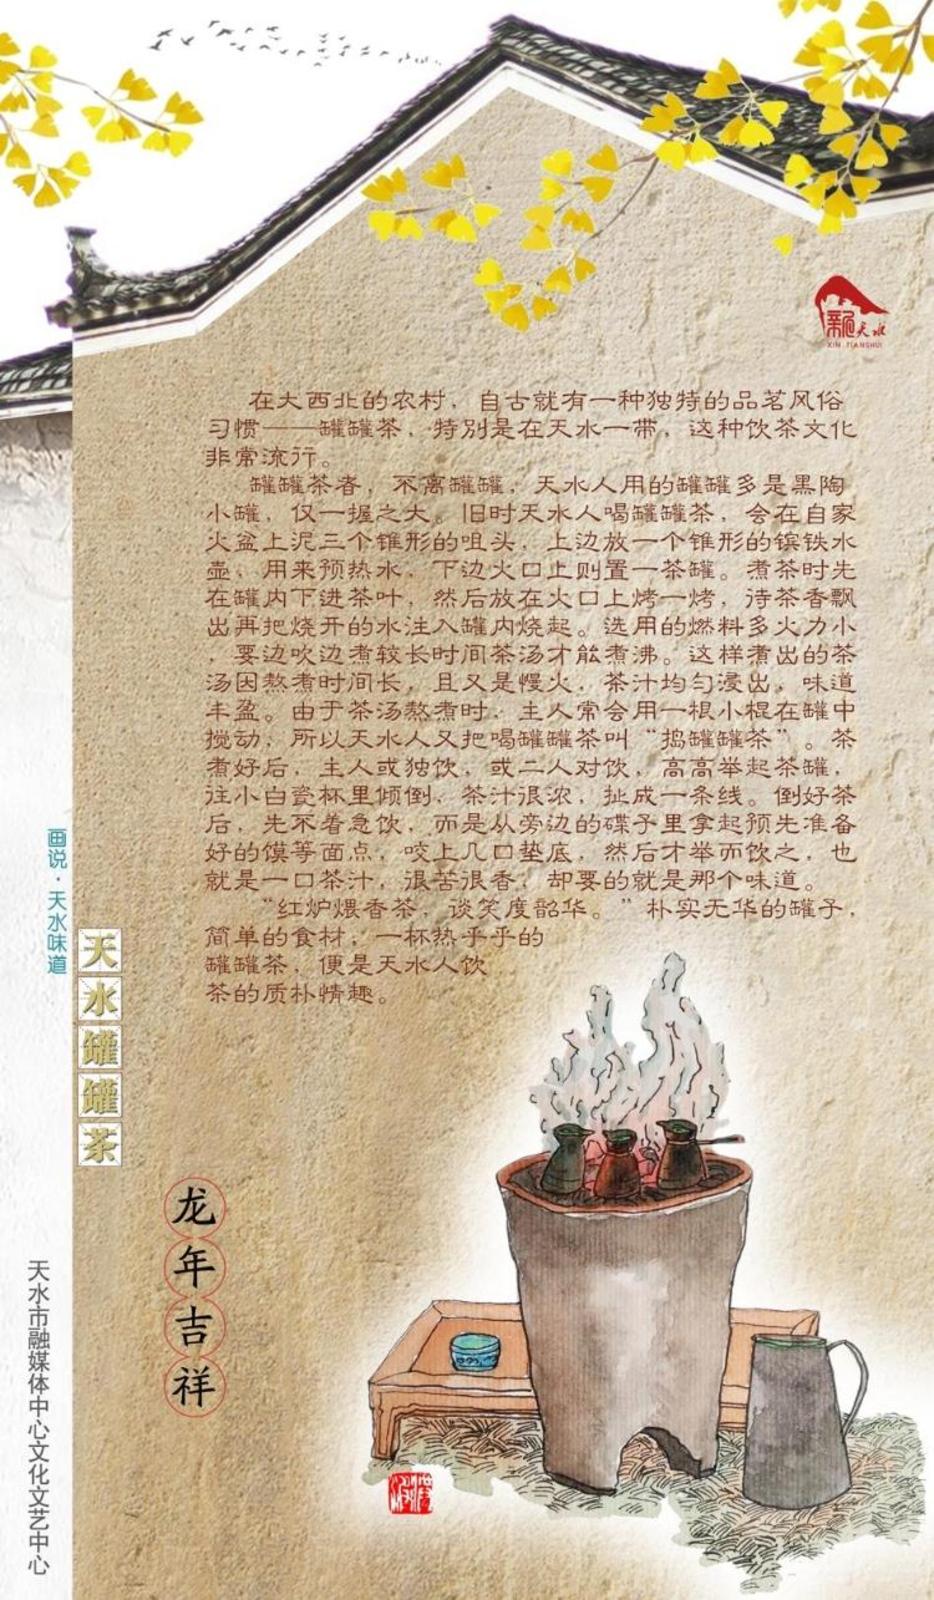 新天水
XIN TIANSHUI
在大西北的农村，自古就有一种独特的品茗风俗
习惯——罐罐茶，特别是在天水一带，这种饮茶文化
非常流行。
罐罐茶者，不离罐罐，天水人用的罐罐多是黑陶
小罐，仅一握之大。旧时天水人喝罐罐茶，会在自家
火盆上泥三个锥形的咀头，上边放一个锥形的镔铁水
壶，用来预热水，下边火口上则置一茶罐。煮茶时先
在罐内下进茶叶，然后放在火口上烤一烤，待茶香飘
出再把烧开的水注入罐内烧起。选用的燃料多火力小
，要边吹边煮较长时间茶汤才能煮沸。这样煮出的茶
汤因熬煮时间长，且又是慢火，茶汁均匀浸出，味道
丰盈。由于茶汤熬煮时，主人常会用一根小棍在罐中
搅动，所以天水人又把喝罐罐茶叫“捣罐罐茶”。茶
煮好后，主人或独饮，或二人对饮，高高举起茶罐，
往小白瓷杯里倾倒，茶汁很浓，扯成一条线。倒好茶
后，先不着急饮，而是从旁边的碟子里拿起预先准备
好的馍等面点，咬上几口垫底，然后才举而饮之，也
就是一口茶汁，很苦很香，却要的就是那个味道。
“红炉煨香茶，谈笑度韶华。”朴实无华的罐子，
简单的食材，一杯热乎乎的
罐罐茶，便是天水人饮
茶的质朴情趣。
画说·天水味道
天水罐罐茶
龙年吉祥
天水市融媒体中心文化文艺中心